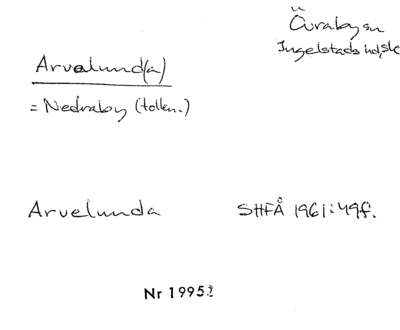 Övraby sn
Ingelstads hd, Sk
Arvalund(a)
= Nedraby (tolkn.)
Arvelunda SHFÅ 1961:49f.
Nr 19952